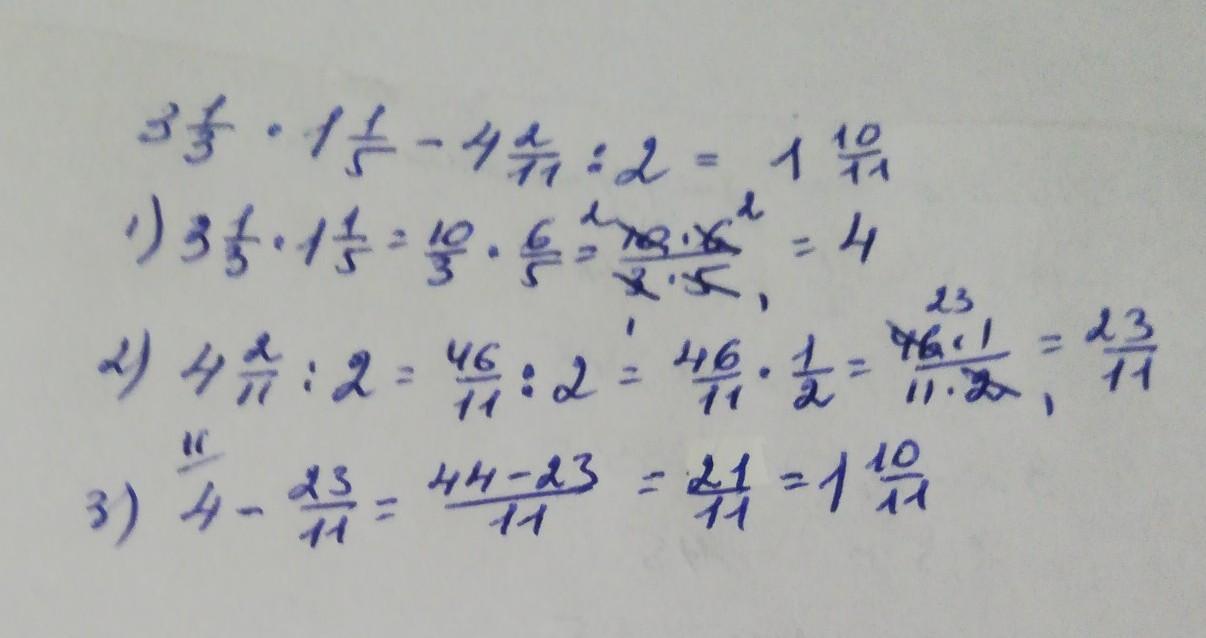 3 1/3 · 1 1/5 - 4 2/11 : 2 = 1 10/11
1) 3 1/3 · 1 1/5 = 10/3 · 6/5 = 2 10·6 2 / 1 3·5 1 = 4
2) 4 2/11 : 2 = 46/11 : 2 = 46/11 · 1/2 = 23 46·1 / 11·2 1 = 23/11
3) 11/ 4 - 23/11 = 44-23/11 = 21/11 = 1 10/11